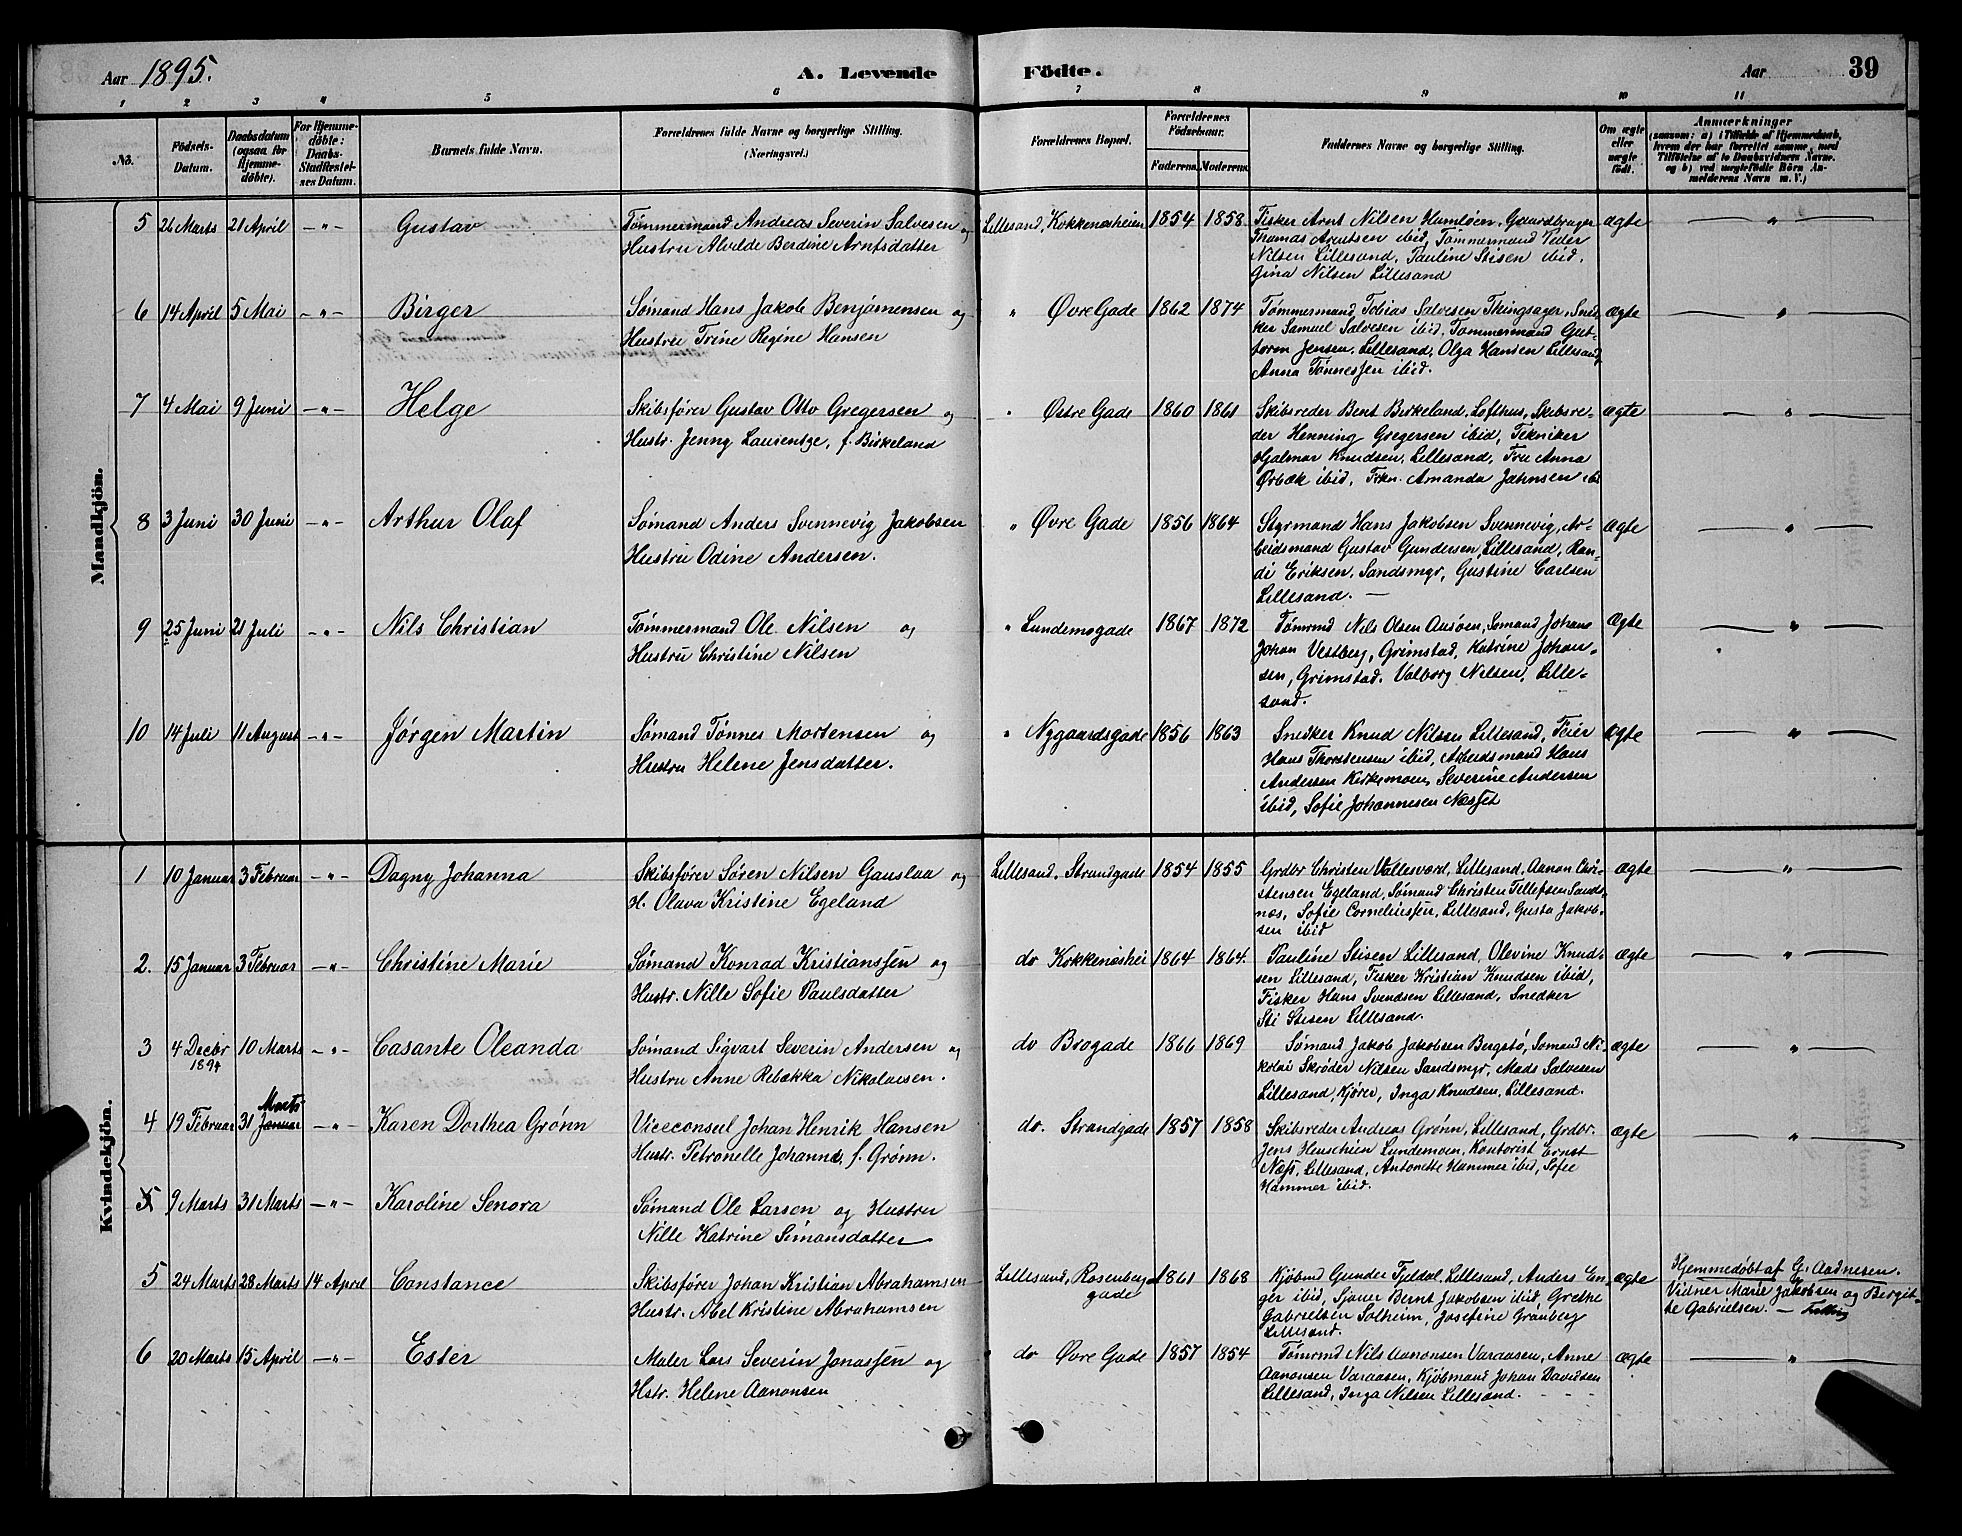 Aar 1895. A. Levende Födte. Aar 39
1 2 3 4 5 6 7 8 9 10 11
No.
Födsels-
Datum.
Daabsdatum
(ogsaa for
Hjemme-
döbte).
For Hjemme-
döbte:
Daabs-
Stadfæstel-
ses Datum.
Barnets fulde Navn.
Forældrenes fulde Navne og borgerlige Stilling.
(Næringsvei.)
Forældrenes Bopæl.
Forældrenes
Födselsaar.
Faderens. Moderens.
Faddernes Navne og borgerlige Stilling.
Om ægte
eller
uægte
födt.
Anmærkninger
(saasom: a) i Tilfælde af Hjemmedaab,
hvem der har forrettet samme, med
Tilföielse af to Daabsvidners Navne.
og b) ved uægtefödte Börn An-
melderens Navn m. V.)
Mandkjön.
5 26 Marts 21 April —"— Gustav Tømmermand Andreas Severin Salvesen og Lillesand, Kokkenæsheien 1854 1858 Fisker Arnt Nilsen Humløen, Gaardbruger ægte — " —
Hustru Alvilde Berdine Arntsdatter Thomas Arntsen ibid, Tømmermand Peder
Nilsen Lillesand, Pauline Stisen ibid,
Gina Nilsen Lillesand
6 14 April 5 Mai —"— Birger Sømand Hans Jakob Benjamensen og " Øvre Gade 1862 1874 Tømmermand Tobias Salvesen Thingsager, Sned- ægte — " —
Hustru Trine Regine Hansen ker Samuel Salvesen ibid, Tømmermand Gut-
torm Jensen, Lillesand, Olga Hansen Lillesand,
Anna Tønnessen ibid.
7 4 Mai 9 Juni —"— Helge Skibsfører Gustav Otto Gregersen og " Østre Gade 1860 1861 Skibsreder Bent Birkeland, Lofthus, Skibsre- ægte — " —
Hustr. Jenny Laurentze, f. Birkeland der Henning Gregersen ibid, Tekniker
Hjalmar Knudsen, Lillesand, Fru Anna
Ørbæk ibid, Frkn. Amanda Jahnsen ibi
8 3 Juni 30 Juni —"— Arthur Olaf Sømand Anders Svennevig Jakobsen " Øvre Gade 1856 1864 Styrmand Hans Jakobsen Svennevig, Ar- ægte — " —
Hustru Odine Andersen. beidsmand Gustav Gundersen, Lillesand, Ran-
di Eriksen, Sandsmyr, Gustine Carlsen
Lillesand. —
9 25 Juni 21 Juli —"— Nils Christian Tømmermand Ole Nilsen og " Lundemogade 1867 1872 Tømrmd Nils Olsen Auøen, Sømand Johans ægte — " —
Hustru Christine Nilsen Johan Vestberg, Grimstad, Katrine Johan-
sen, Grimstad. Valborg Nilsen, Lille-
sand.
10 14 Juli 11 August —"— Jørgen Martin Sømand Tønnes Mortensen og " Nygaardsgade 1856 1863 Snedker Knud Nilsen Lillesand, Feier ægte — " —
Hustru Helene Jensdatter. Hans Thorstensen ibid, Arbeidsmand Hans
Andersen Kirkemoen, Severine Andersen
ibid, Sofie Johannesen Næsset
Kvindekjön.
1 10 Januar 3 Februar —"— Dagny Johanna Skibsfører Søren Nilsen Gauslaa og Lillesand. Strandgade 1854 1855 Grdbr Christen Vallesværd, Lillesand, Aanon Chri- ægte — " —
H. Olava Kristine Egeland stensen Egeland, Sømand Christen Tellefsen Sands-
næs, Sofie Corneliussen, Lillesand, Gusta Jakob-
sen ibid
2. 15 Januar 3 Februar —"— Christine Marie Sømand Konrad Kristianssen og do Kokkenæshei 1864 1864. Pauline Stisen Lillesand, Olevine Knud- ægte — " —
Hustr. Nille Sofie Paulsdatter sen Lillesand, Fisker Kristian Knudsen ibid,
Fisker Hans Svendsen Lillesand, Snedker
Sti Stisen Lillesand.
3 4 Decbr 10 Marts —"— Casante Oleanda Sømand Sigvart Severin Andersen og do Brogade 1866 1869 Sømand Jakob Jakobsen Bergstø, Sømand Ni- ægte — " —
1894 Hustru Anne Rebækka Nikolaisen. kolai Skrøder Nilsen Sandsmyr, Mads Salvesen
Lillesand, Kjører, Inga Knudsen, Lillesand.
Marts
4 19 Februar 31 Januar —"— Karen Dorthea Grønn Viceconsul Johan Henrik Hansen do. Strandgade 1857 1858 Skibsreder Andreas Grønn, Lillesand, Grdbr. ægte — " —
Hustr. Petronelle Johanne, f. Grønn. Jens Henschien Lundemoen, Kontorist Ernst
Næss, Lillesand, Antonette Hammer ibid, Sofie
Hammer ibid.
5 9 Marts 31 Marts —"— Karoline Senora Sømand Ole Larsen og Hustru
Nille Katrine Simonsdatter
5 24 Marts 28 Marts 14 April Constance Skibsfører Johan Kristian Abrahamsen Lillesand, Rosenberg 1861 1868 Kjøbmd Gunder Fjeldal, Lillesand, Anders En- ægte Hjemmedøbt af G. Aadnesen.
Hustr. Abel Kristine Abrahamsen gade ger ibid, Sjauer Bernt Jakobsen ibid, Grethe Vidner Marie Jakobsen og Bergit-
Gabrielsen Solheim, Josefine Grønberg te Gabrielsen. —
Lillesand.
6 20 Marts 15 April —"— Ester Maler Lars Severin Jonassen og do Øvre Gade 1857 1854 Tømrmd Nils Aanonsen Varaasen, Anne ægte — " —
Hstr. Helene Aanonsen Aanonsen Varaasen, Kjøbmand Johan Davidsen
Lillesand, Inga Nilsen Lillesand. - - -